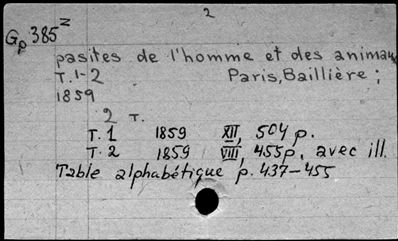 2
Gp 385z
pasites de l'homme et des animaux
T. 1-2 Paris, Baillière;
1859
2 T.
T. 1 1859 XII, 504 p.
T. 2 1859 VIII, 455p, avec ill.
Table alphabétique p. 437-455